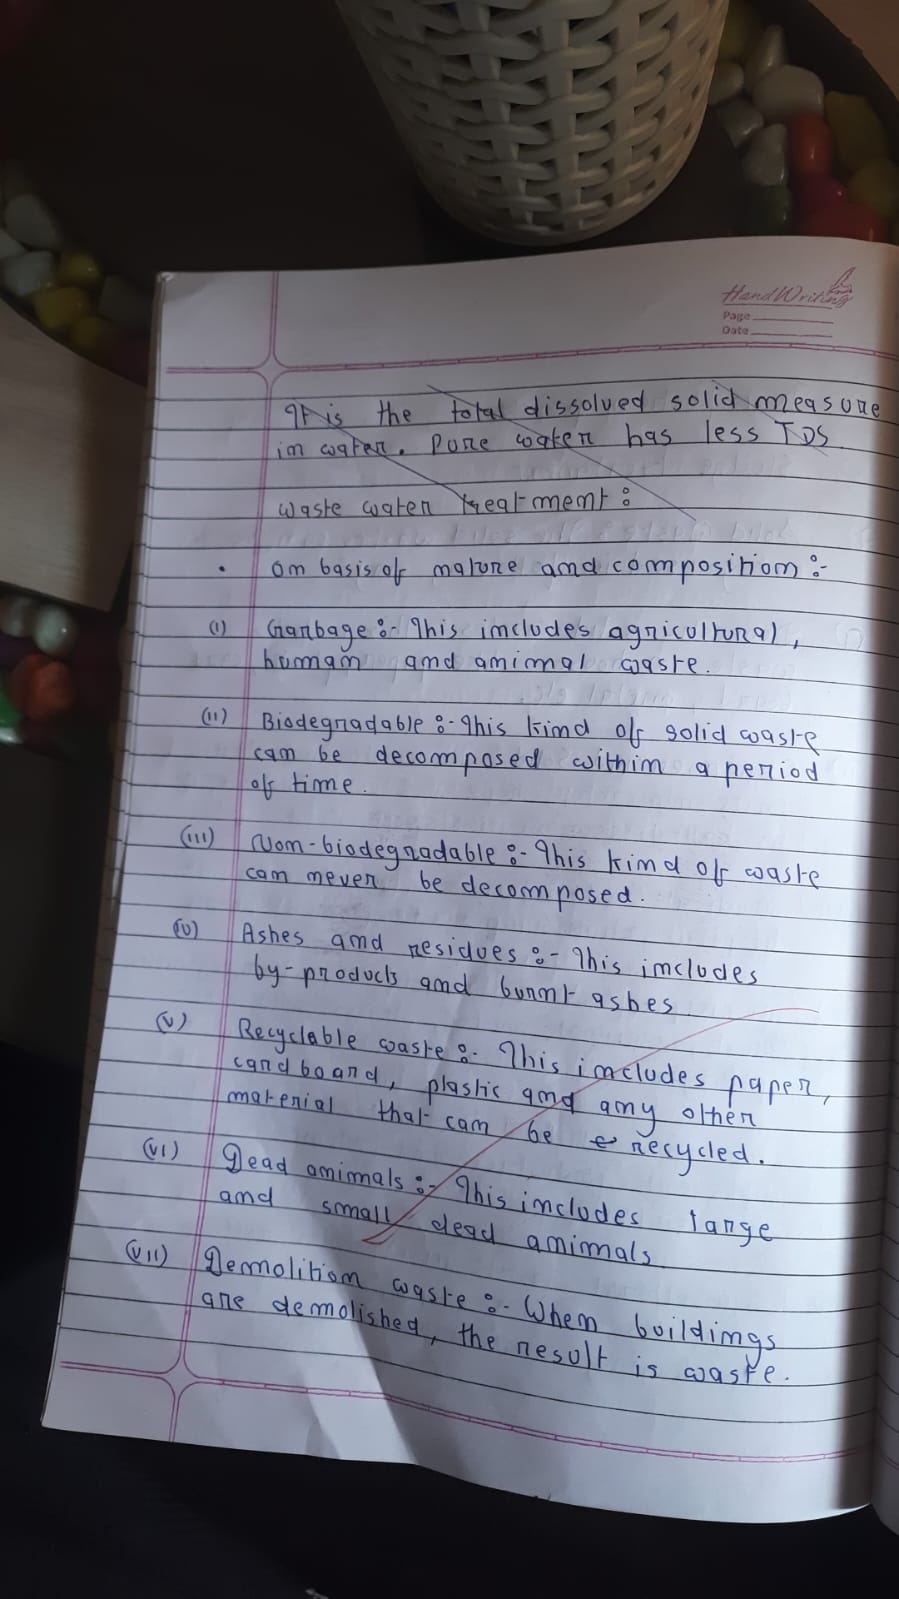 HandWriting
Page
Date
It is the total dissolved solid measure
in water. Pure water has less TDS
waste water treatment:
• On basis of nature and composition :-
(i) Garbage :- This includes agricultural,
human and animal waste.
(ii) Biodegradable :- This kind of solid waste
can be decomposed within a period
of time.
(iii) Non-biodegradable :- This kind of waste
can never be decomposed.
(iv) Ashes and residues :- This includes
by-products and burnt ashes
(v) Recyclable waste :- This includes paper,
cardboard, plastic and any other
material that can be recycled.
(vi) Dead animals :- This includes large
and small dead animals
(vii) Demolition waste :- When buildings
are demolished, the result is waste.